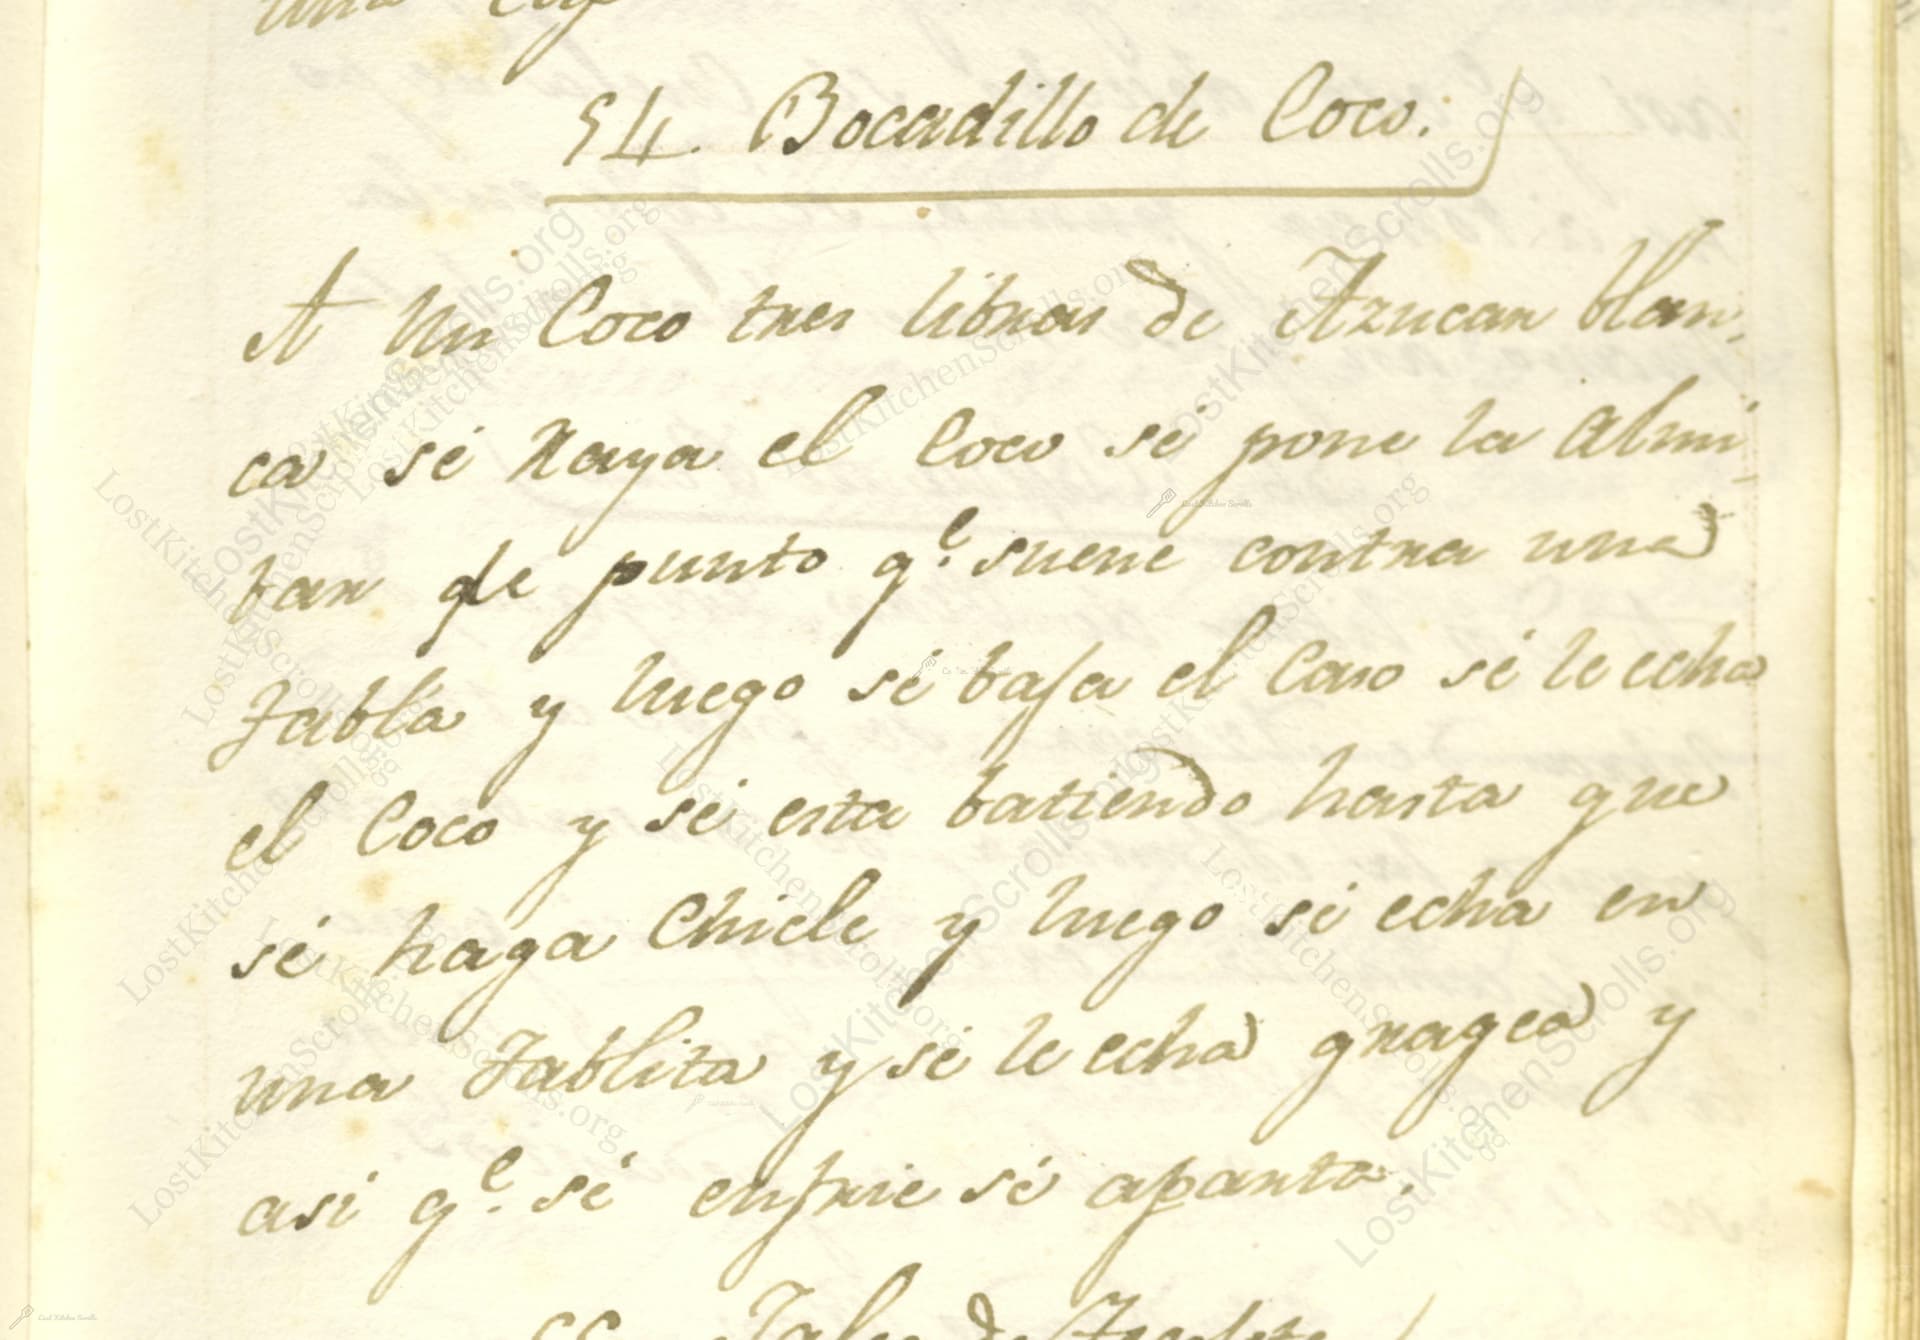 una
54. Bocadillo de Coco.
A Un Coco tres libras de Azucar blan,
ca sé Raya el Coco sé pone la Almi-
bar de punto q.e suene contra una
Tabla y luego sé baja el Caso sé le echa
el Coco y sé esta batiendo hasta que
sé haga Chicle y luego sé echa en
una Tablita y sé le echa gragea y
asi q.e sé enfrie sé aparta.
55. de